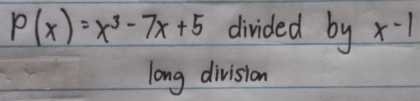 P(x) = x³ - 7x + 5 divided by x - 1
long division